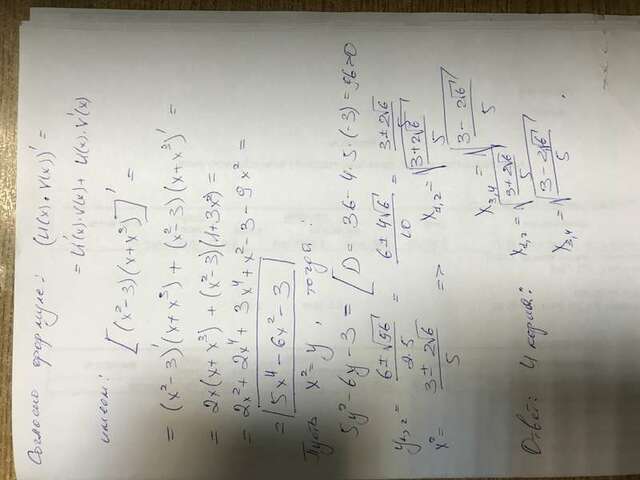 Согласно формуле: (U(x)·V(x))' =
= U'(x)·V(x) + U(x)·V'(x)
имеем:
[(x²-3)(x+x³)]' =
= (x²-3)'(x+x³) + (x²-3)(x+x³)' =
= 2x(x+x³) + (x²-3)(1+3x²) =
= 2x² + 2x⁴ + 3x⁴ + x² - 3 - 9x² =
= 5x⁴ - 6x² - 3
Пусть x² = y, тогда:
5y² - 6y - 3 = [D = 36 - 4·5·(-3) = 96 > 0
y₁,₂ = (6 ± √96)/(2·5) = (6 ± 4√6)/10 = (3 ± 2√6)/5
x² = (3 ± 2√6)/5 => x₁,₂ = √((3+2√6)/5)
x₃,₄ = √((3-2√6)/5)
Ответ: 4 корня: x₁,₂ = √((3+2√6)/5)
x₃,₄ = √((3-2√6)/5).